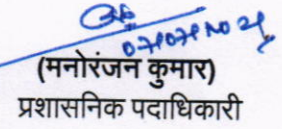 (मनोरंजन कुमार)
प्रशासनिक पदाधिकारी